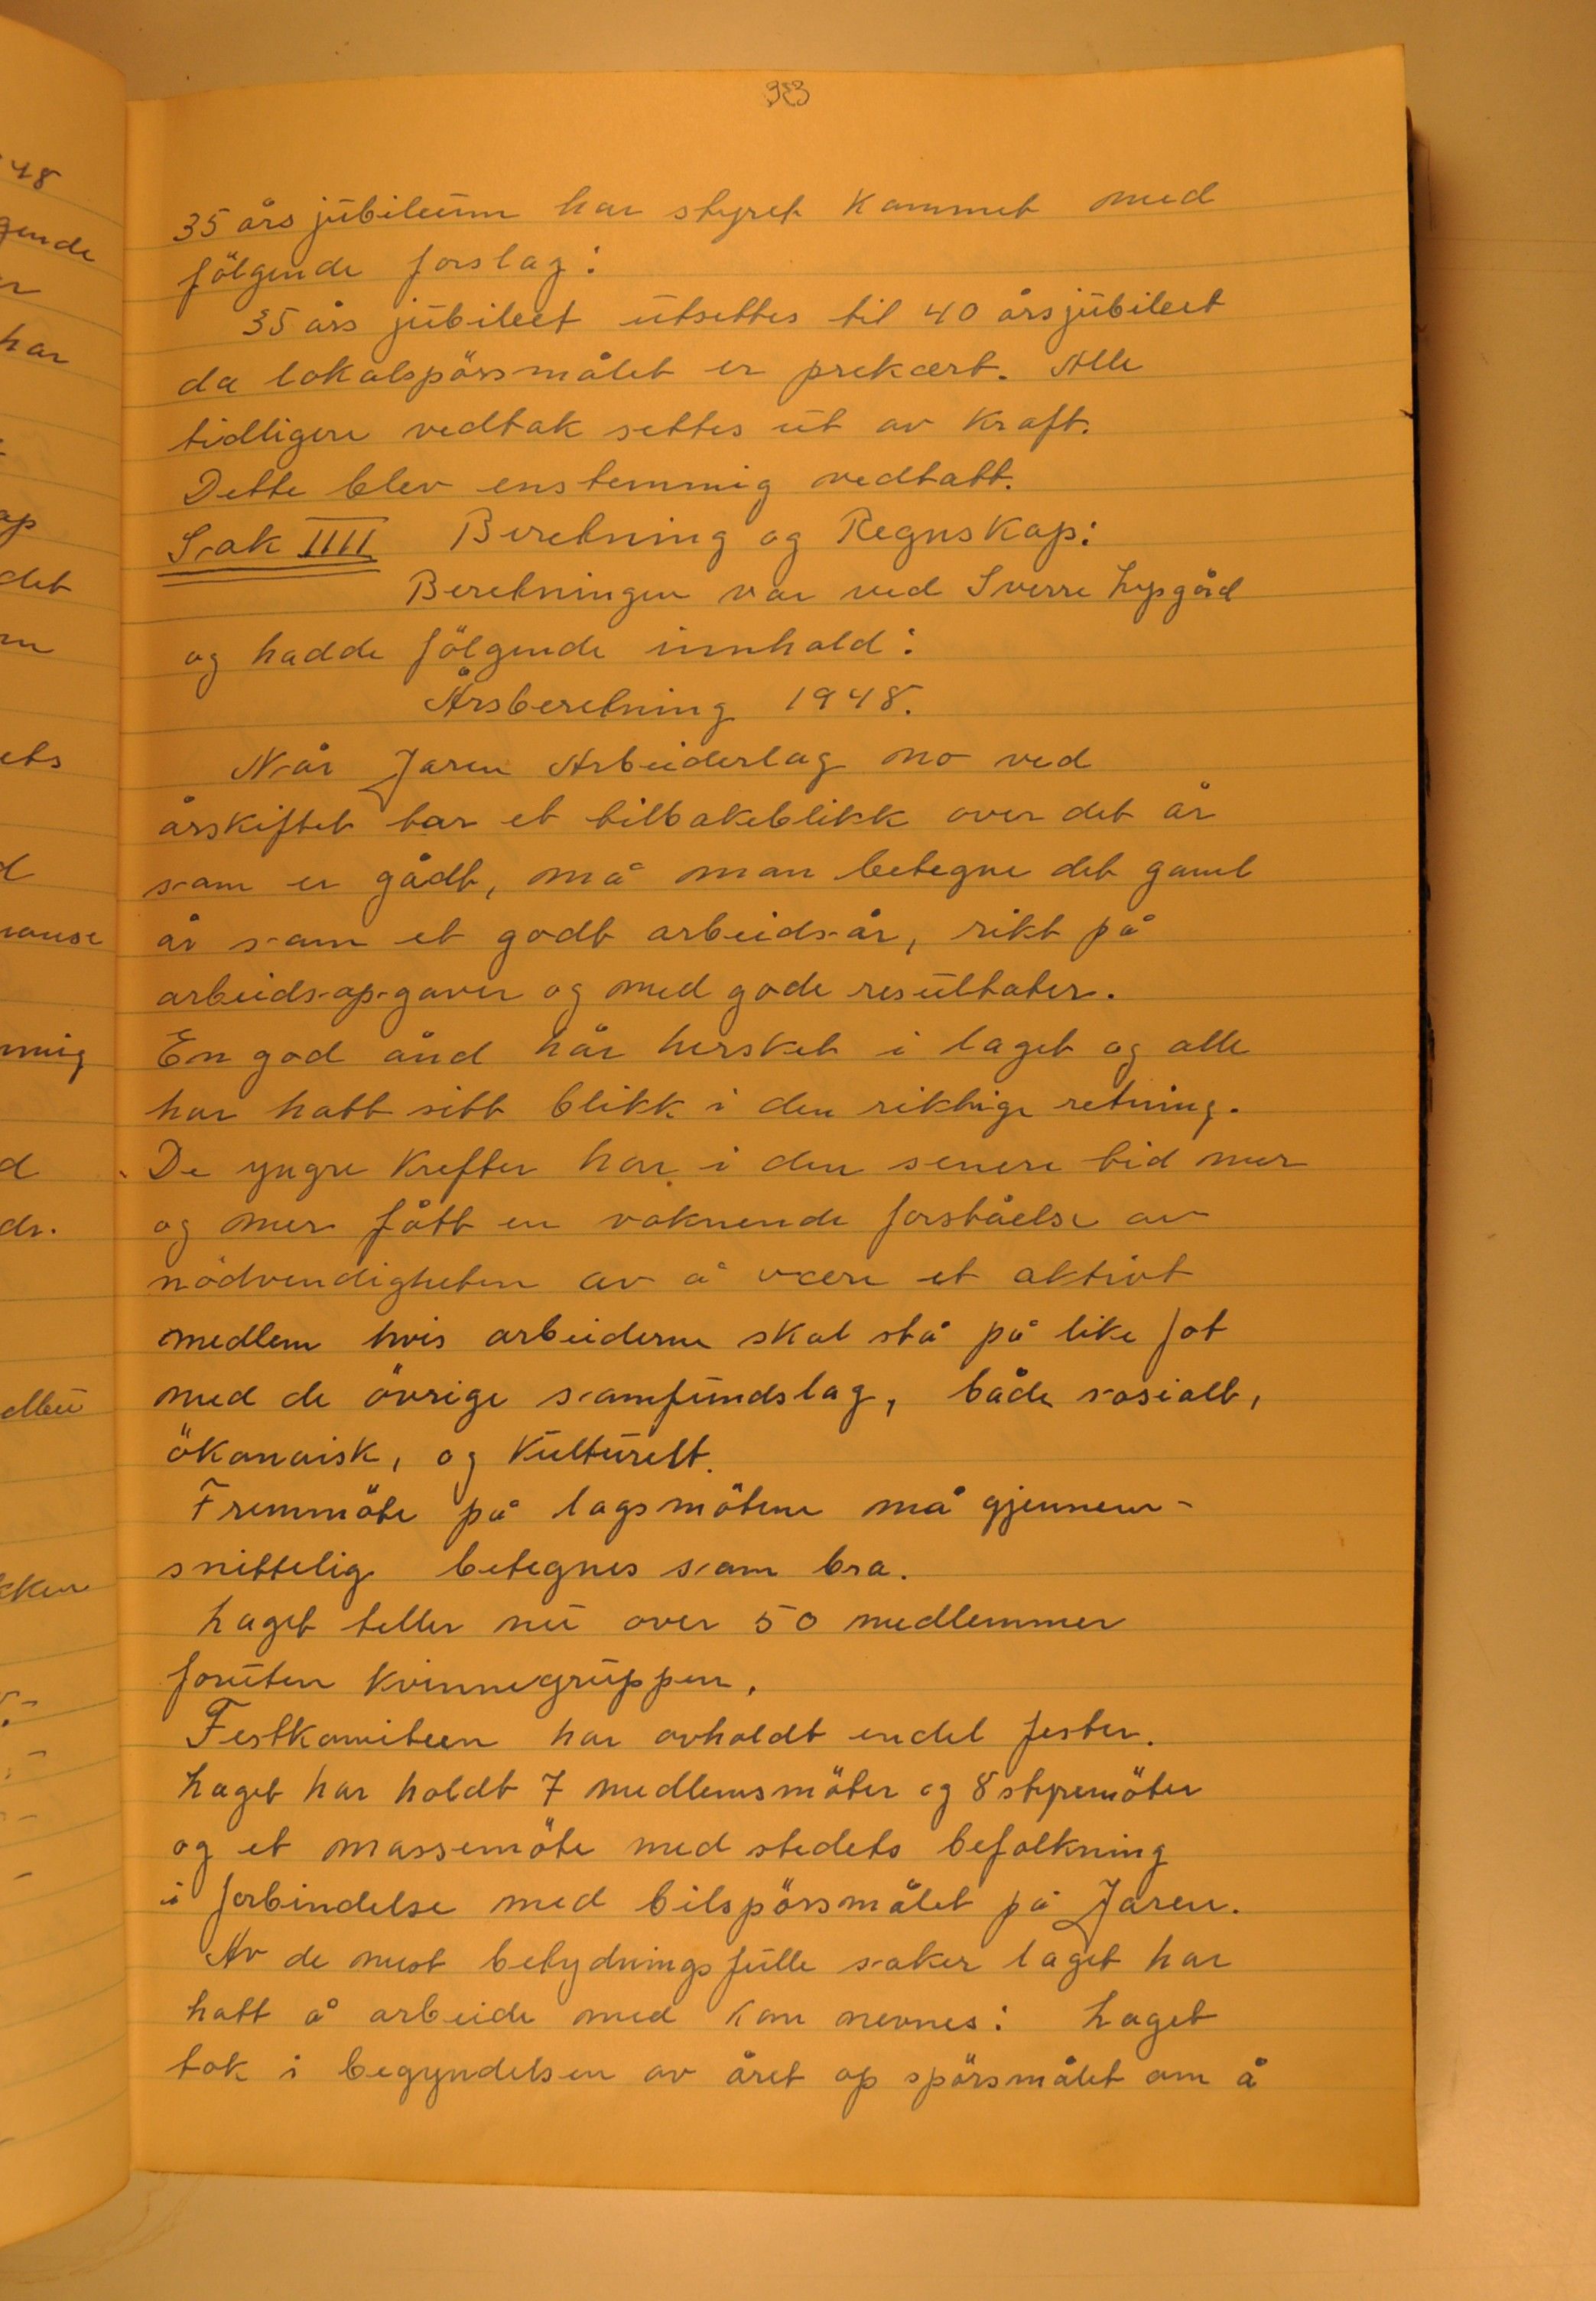 35 års jubileum har styret kommet med
fölgende forslag:
35 års jubileet utsettes til 40 årsjubileet
da lokalspörsmålet er prekært. Alle
tidligere vedtak settes ut av kraft.
Dette blev enstemmig vedtatt.
Sak IIII Beretning og Regnskap:
Beretningen var ved Sverre Lysgård
og hadde fölgende innhold:
Årsberetning 1948.
Når Jaren Arbeiderlag no ved
årskiftet tar et tilbakeblikk over det år
som er gådt, må man betegne det gamle
år som et godt arbeids-år, rikt på
arbeids-op-gaver og med gode resultater.
En god ånd hår hersket i laget og alle
har hatt sitt blikk i den riktige retning.
De yngre krefter har i den senere tid mer
og mer fått en voknende forståelse av
nödvendigheten av å være et aktivt
medlem hvis arbeiderne skal stå på like fot
med de övrige samfundslag, både sosialt,
ökonoisk, og kulturelt.
Fremmöte på lagsmötene må gjennem-
snittelig betegnes som bra.
Laget teller nu over 50 medlemmer
foruten kvinnegruppen.
Festkomiteen har avholdt endel fester.
Laget har holdt 7 medlemsmöter og 8 styremöter
og et massemöte med stedets befolkning
i forbindelse med bilspörsmålet på Jaren.
Av de mest betydningsfulle saker laget har
hatt å arbeide med kan nevnes: Laget
tok i begyndelsen av året op spörsmålet om å